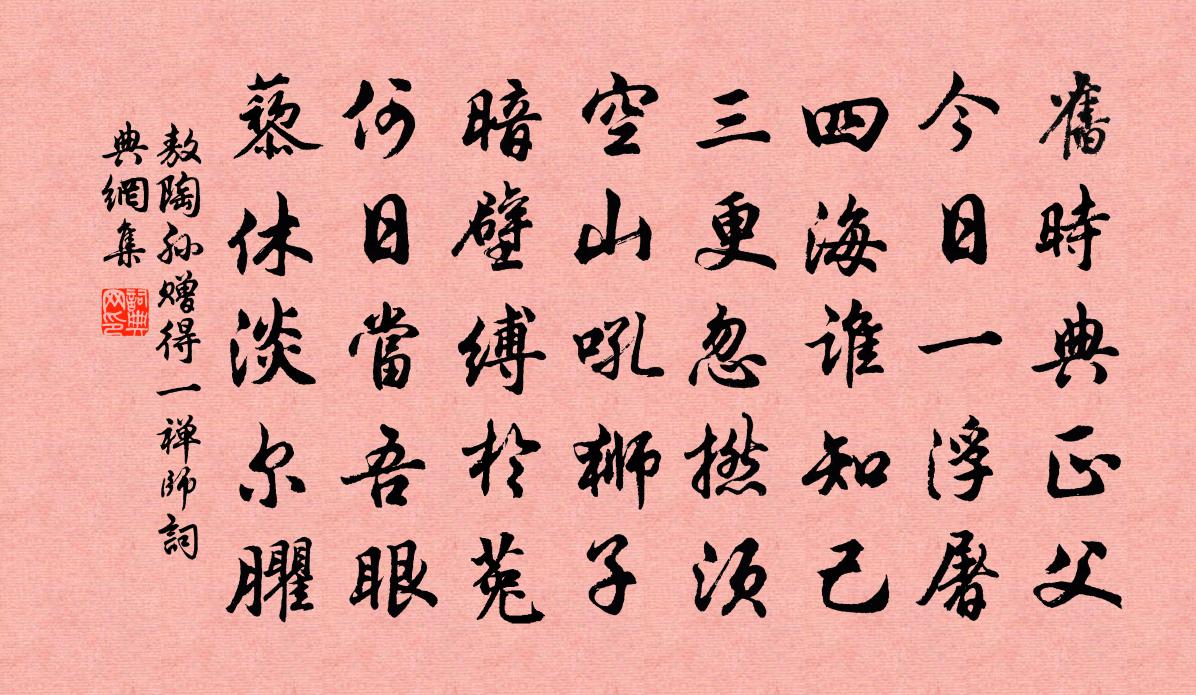 舊時典正父
今日一浮屠
四海誰知己
三更忽撚須
空山吼獅子
暗壁縛於菟
何日當吾眼
藜休淡尔臞
敖陶孙赠得一禅師詞
典網集
詞典网印